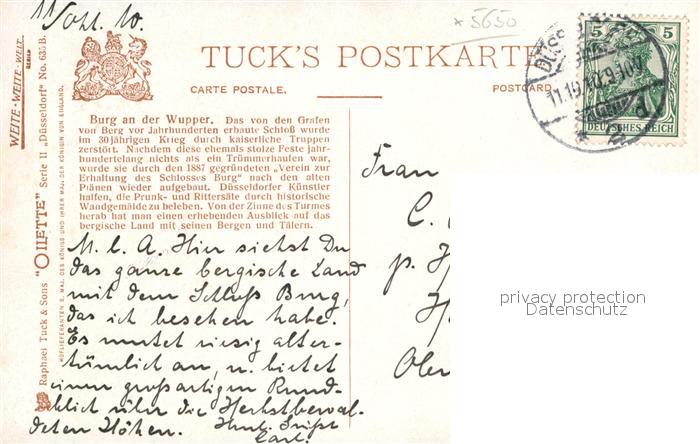 11/Okt. 10.
x 5650
WEITE-WEITE-WELT
SERIE
Raphael Tuck & Sons "OILETTE" Serie II „Düsseldorf" No. 635 B.
HOFLIEFERANTEN S. MAJ. DES KÖNIGS UND IHRER MAJ. DER KÖNIGIN VON ENGLAND.
TUCK'S POSTKARTE
CARTE POSTALE. POSTCARD
5 5
DEUTSCHES REICH
DÜSSELDORF
Burg an der Wupper. Das von den Grafen
von Berg vor Jahrhunderten erbaute Schloß wurde
im 30 jährigen Krieg durch kaiserliche Truppen
zerstört. Nachdem diese ehemals stolze Feste jahr-
hundertelang nichts als ein Trümmerhaufen war,
wurde sie durch den 1887 gegründeten „Verein zur
Erhaltung des Schlosses Burg" nach den alten
Plänen wieder aufgebaut. Düsseldorfer Künstler
halfen, die Prunk- und Rittersäle durch historische
Wandgemälde zu beleben. Von der Zinne des Turmes
herab hat man einen erhebenden Ausblick auf das
bergische Land mit seinen Bergen und Tälern.
M. l. A. Hier siehst Du
das ganze bergische Land
mit dem Schloß Burg,
das ich besehen habe.
Es mutet riesig alter-
tümlich an, u. bietet
einen großartigen Rund-
blick über die Herbstbewal-
deten Höhen. Herzl. Grüße
Carl.
Frau
C.
p.
Ober
privacy protection
Datenschutz